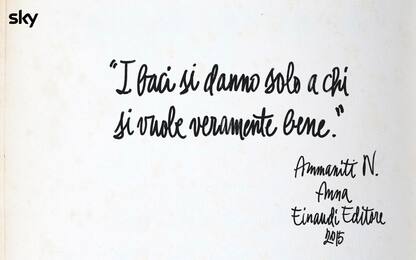 sky
"I baci si danno solo a chi
si vuole veramente bene."
Ammaniti N.
Anna
Einaudi Editore
2015